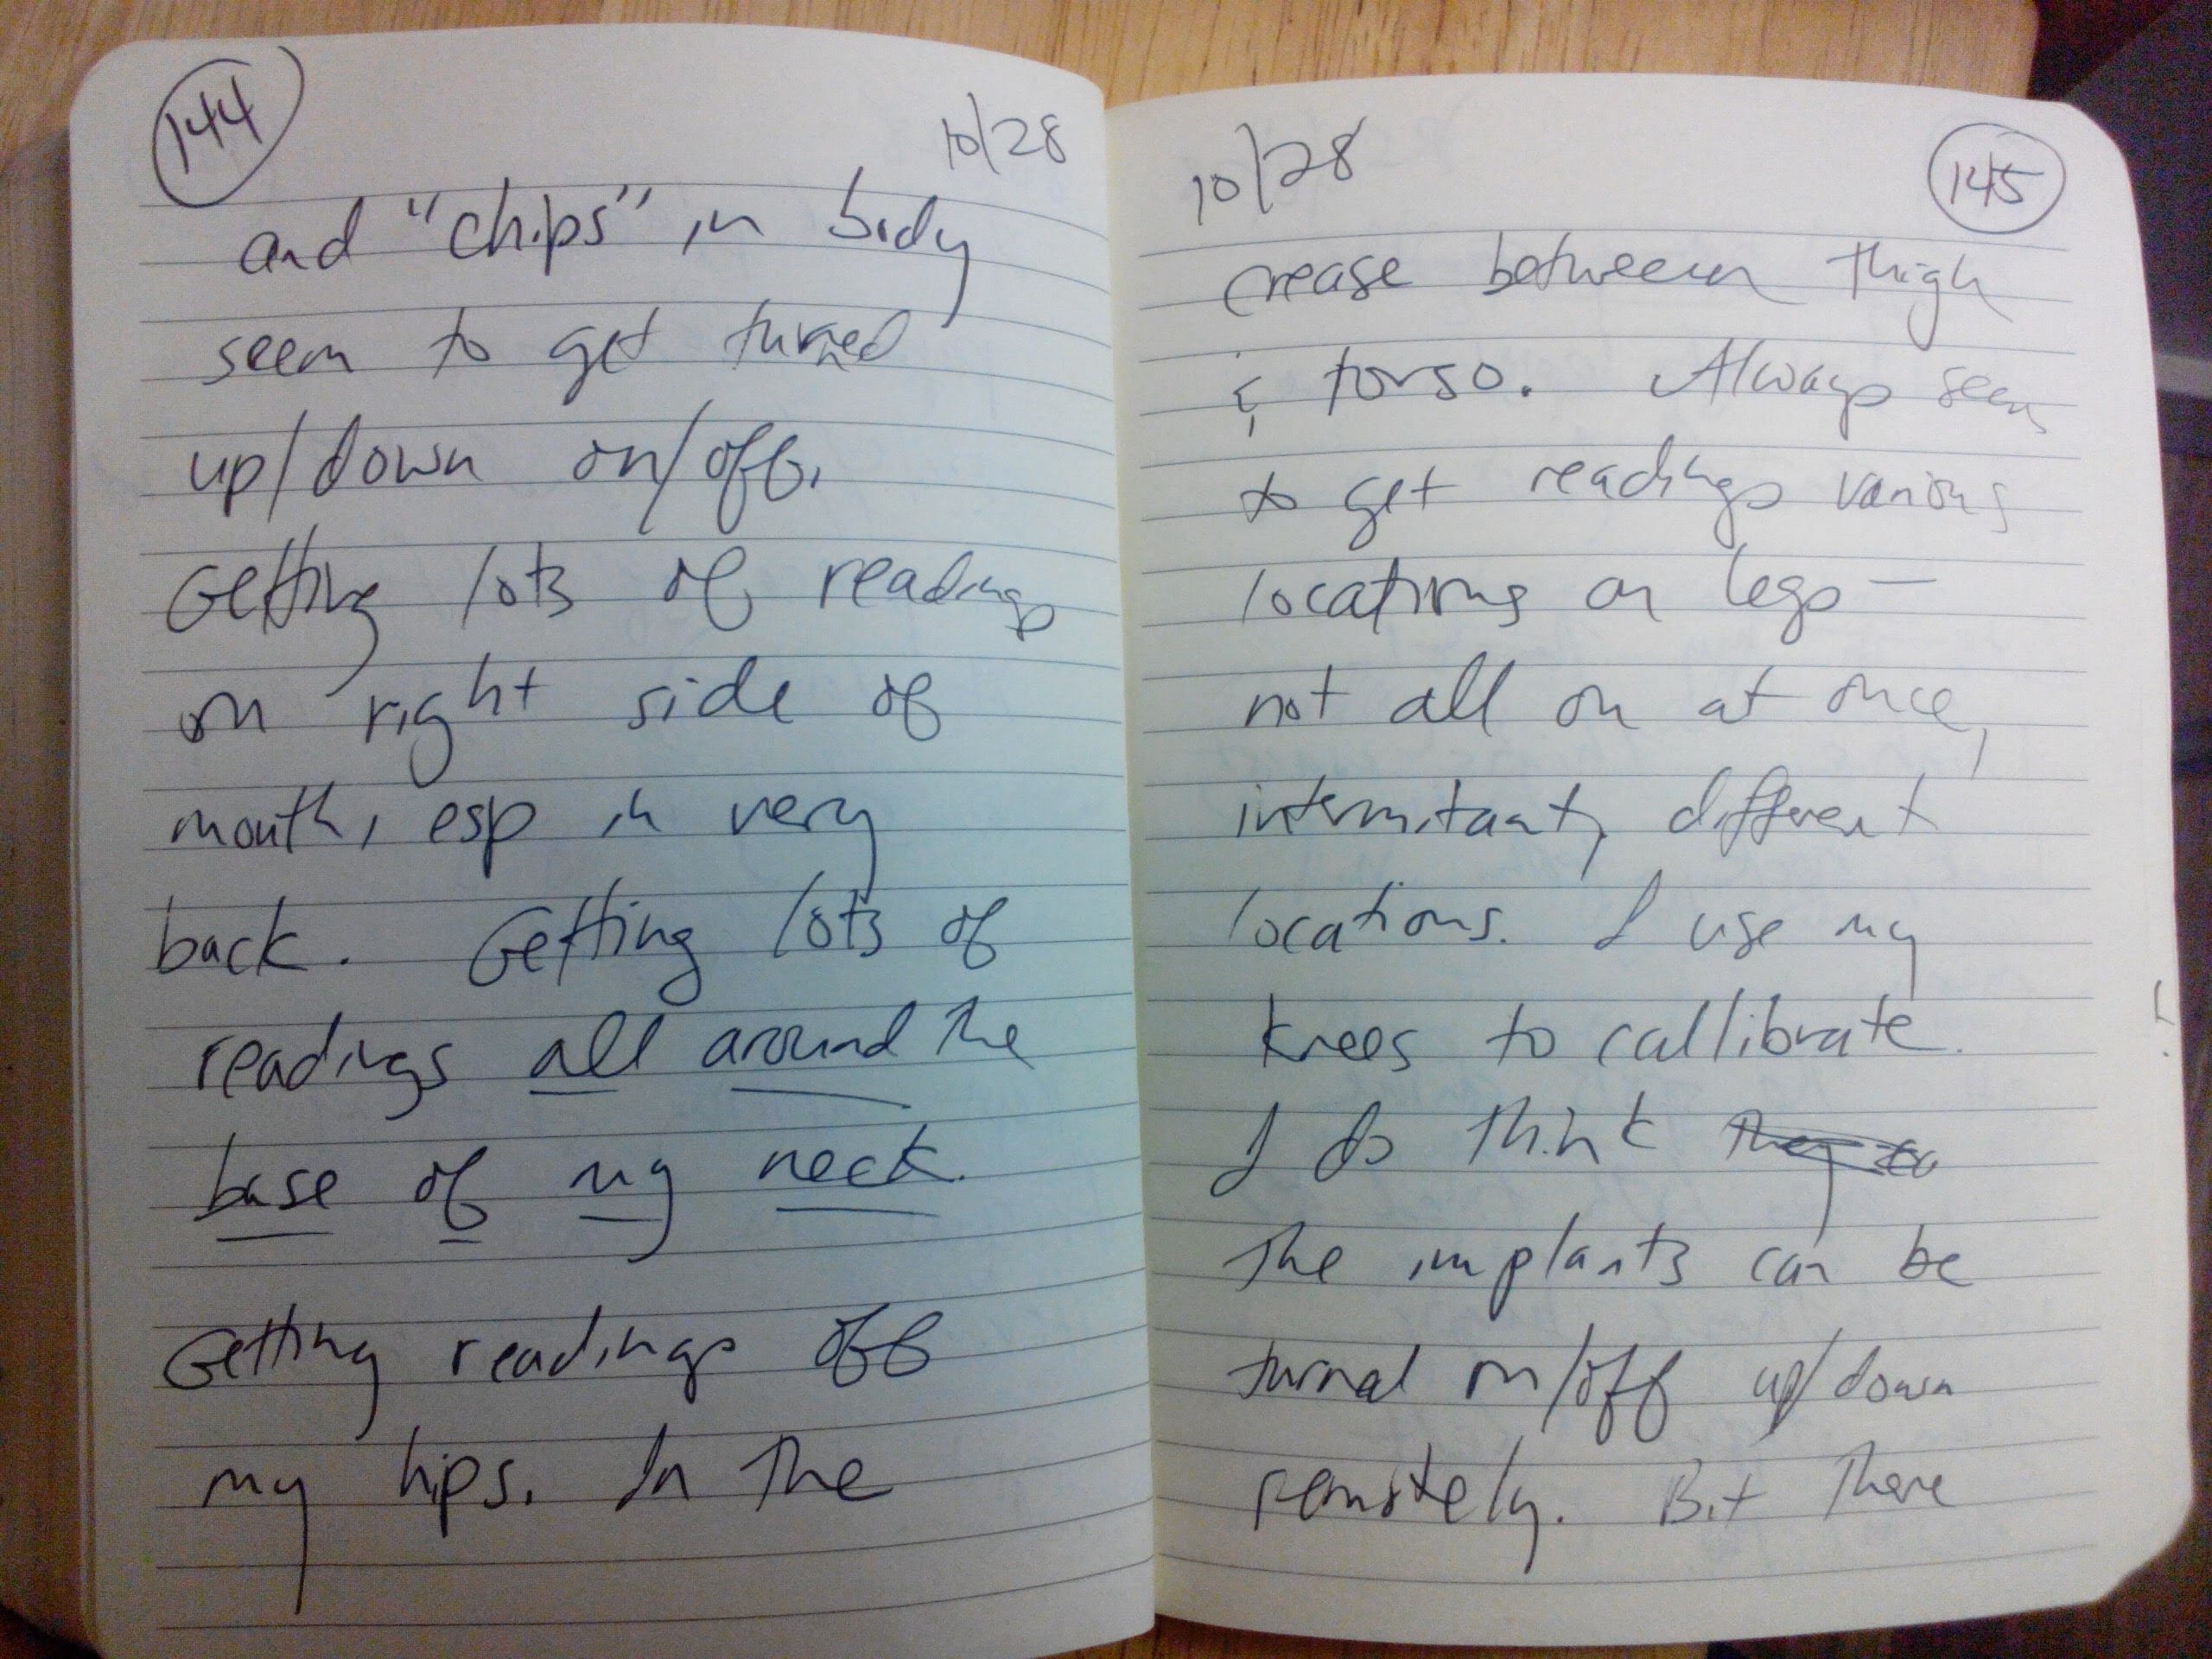 144
10/28
and "chips" in body
seem to get turned
up/down on/off.
Getting lots of readings
on right side of
mouth, esp in very
back. Getting lots of
readings all around the
base of my neck.
Getting readings off
my hips. In the
10/28
145
crease between thigh
& torso. Always seem
to get readings various
locations on legs —
not all on at once,
intermitant, different
locations. I use my
knees to callibrate.
I do think they
the implants can be
turned on/off up/down
remotely. But there